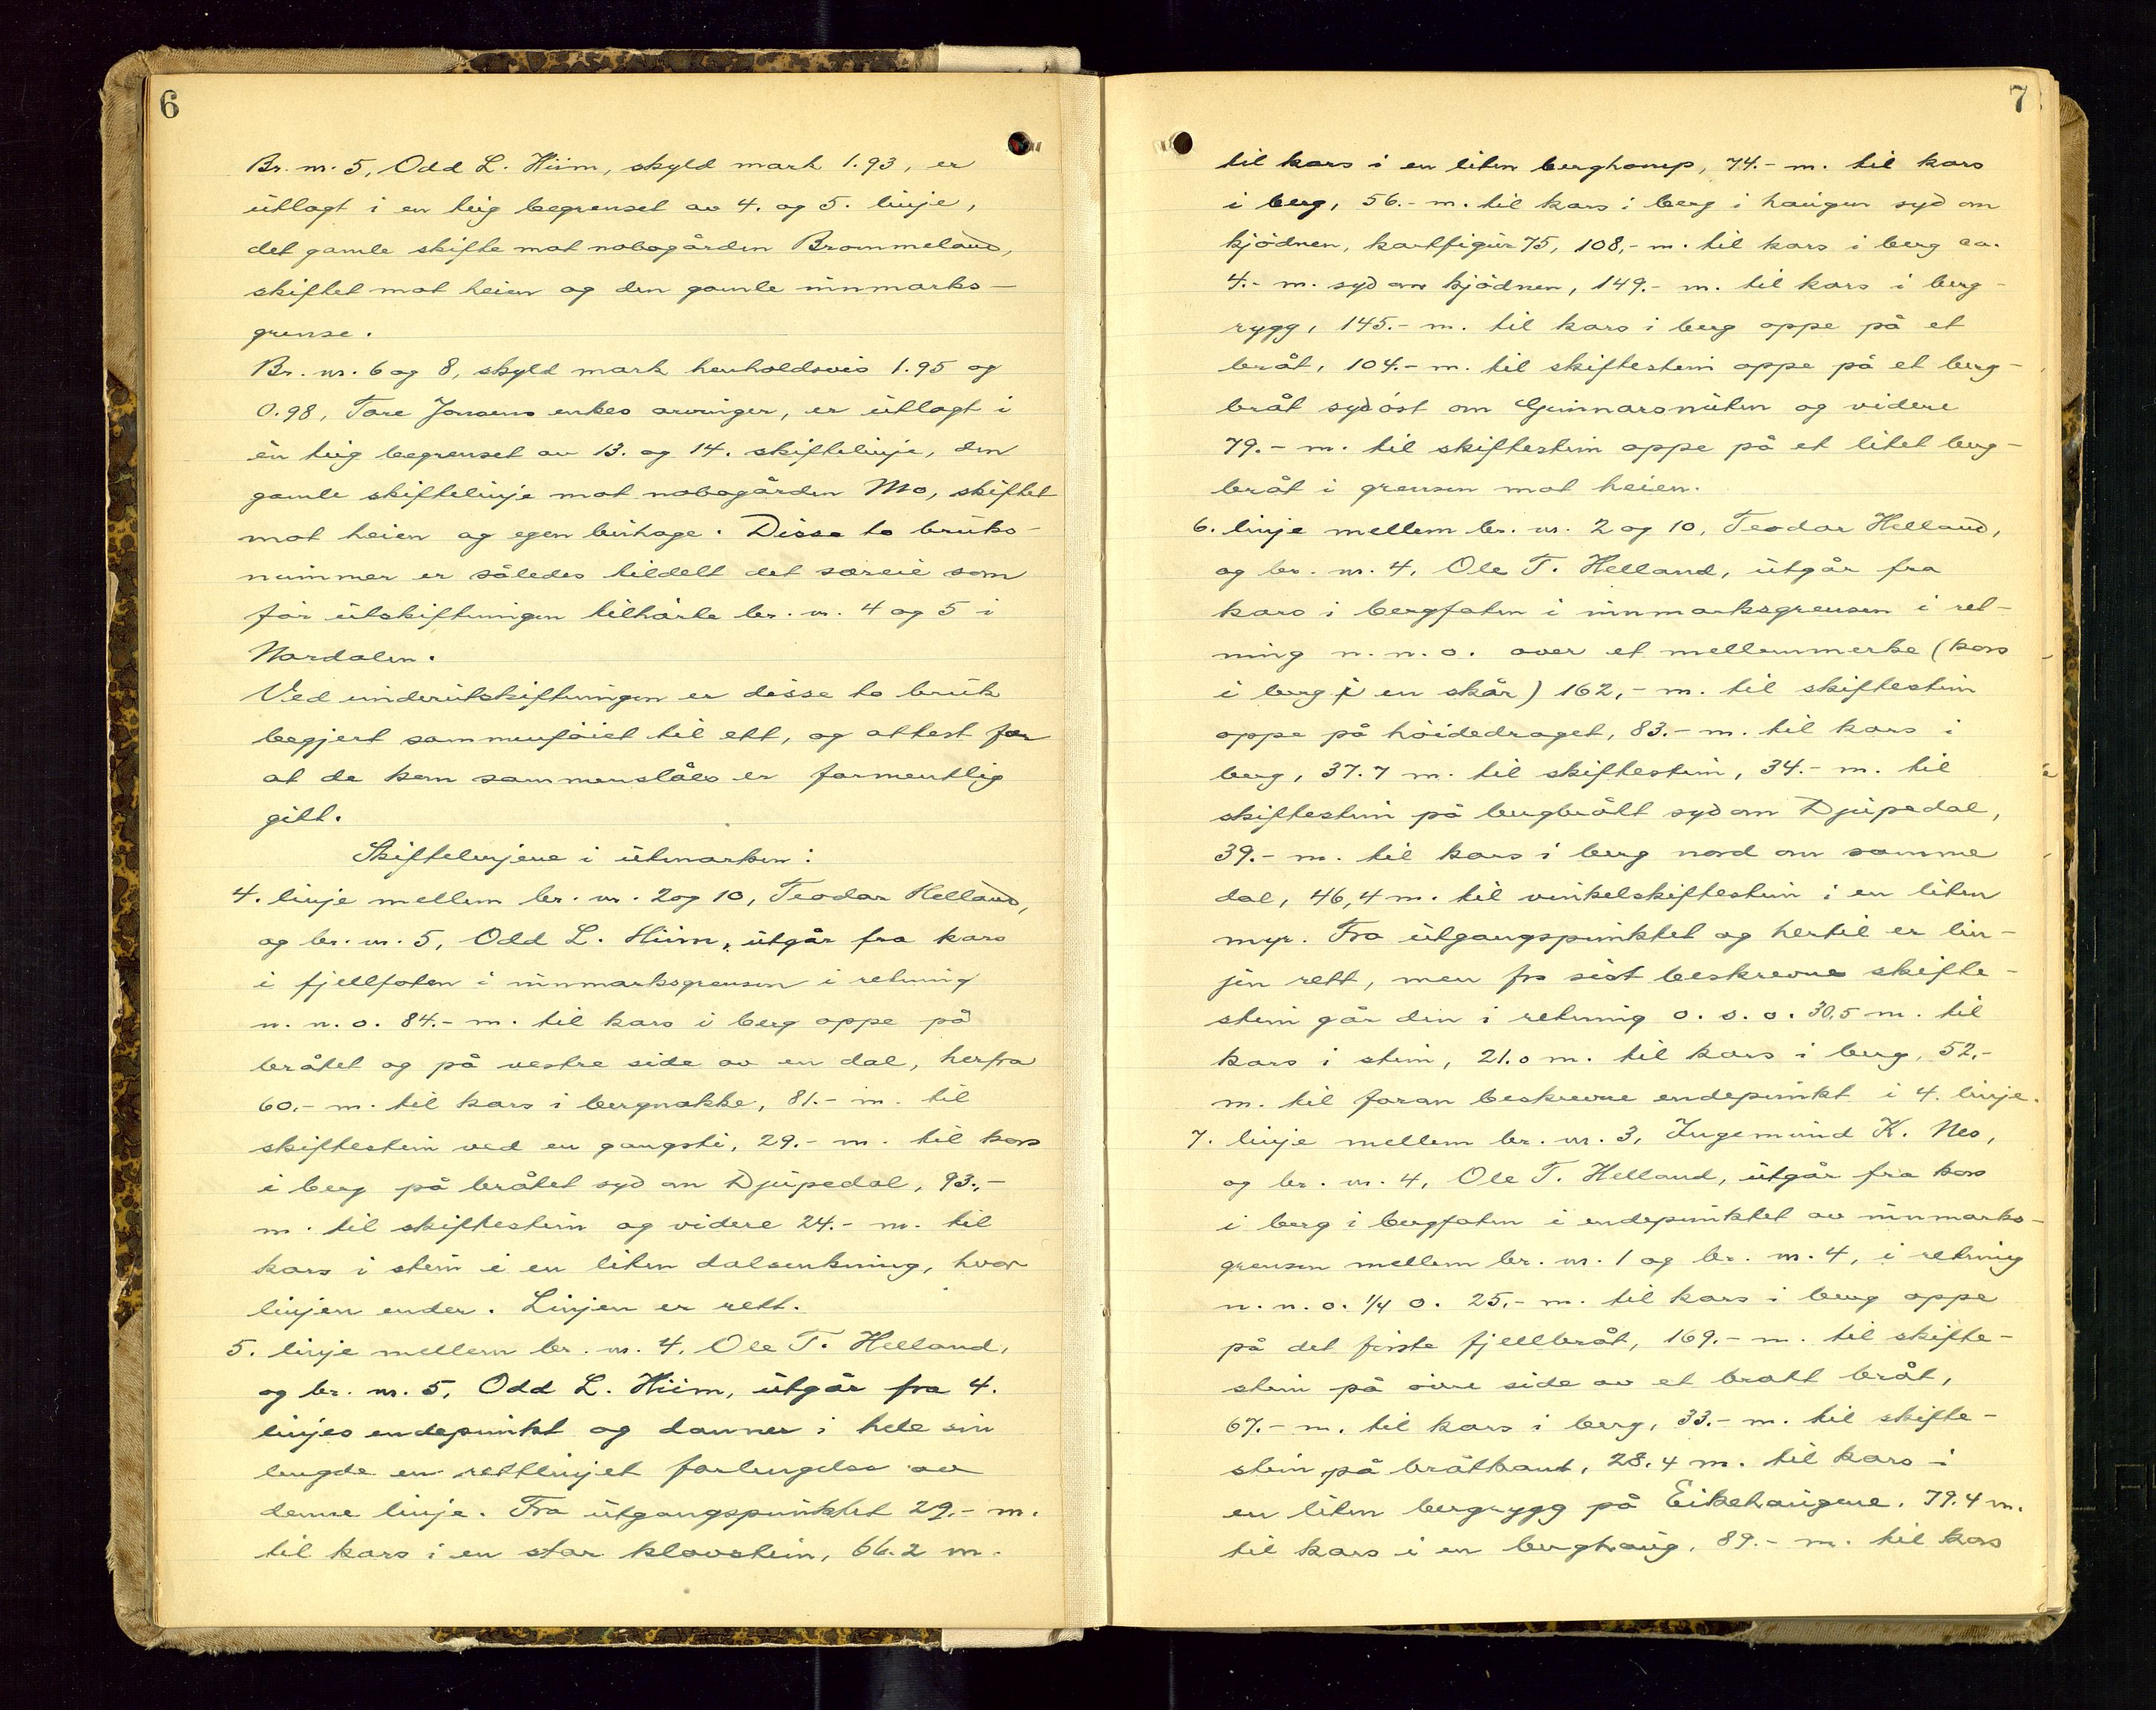 6
Br. nr. 5, Odd L. Hiim, skyld mark 1.93, er
utlagt i en teig begrenset av 4. og 5. linje,
det gamle skifte mot nabogården Brommeland,
skiftet mot heien og den gamle innmarks-
grense.
Br. nr. 6 og 8, skyld mark henholdsvis 1.95 og
0.98, Tore Jonsens enkes arvinger, er utlagt i
én teig begrenset av 13. og 14. skiftelinje, den
gamle skiftelinje mot nabogården Mo, skiftet
mot heien og egen buhage. Disse to bruks-
nummer er således tildelt det særeie som
før utskiftningen tilhørte br. nr. 4 og 5 i
Nordalen.
Ved underutskiftningen er disse to bruk
begjert sammenføiet til ett, og attest for
at de kan sammenslåes er formentlig
gitt.
Skiftelinjene i utmarken:
4. linje mellem br. nr. 2 og 10, Teodor Helland,
og br. nr. 5, Odd L. Hiim, utgår fra kors
i fjellfoten i innmarksgrensen i retning
n. n. o. 84.- m. til kors i berg oppe på
bråtet og på vestre side av en dal, herfra
60.- m. til kors i bergnakke, 81.- m. til
skiftestein ved en gangsti, 29.- m. til kors
i berg på bråtet syd om Djupedal, 93.,-
m. til skiftestein og videre 24.- m. til
kors i stein i en liten dalsenkning, hvor
linjen ender. Linjen er rett.
5. linje mellem br. nr. 4, Ole T. Helland,
og br. nr. 5, Odd L. Hiim, utgår fra 4.
linjes endepunkt og danner i hele sin
lengde en rettlinjet forlengelse av
denne linje. Fra utgangspunktet 29.- m.
til kors i en stor klovstein, 66.2 m.
7
til kors i en liten berghamp, 74.- m. til kors
i berg, 56.- m. til kors i berg i haugen syd om
kjödnen, kartfigur 75, 108,- m. til kors i berg ca.
4.- m. syd om kjödnen, 149.- m. til kors i berg-
rygg, 145.- m. til kors i berg oppe på et
bråt, 104.- m. til skiftestein oppe på et berg-
bråt sydöst om Gunnarsnuten og videre
79.- m. til skiftestein oppe på et litet berg-
bråt i grensen mot heien.
6. linje mellem br. nr. 2 og 10, Teodor Helland,
og br. nr. 4, Ole T. Helland, utgår fra
kors i bergfoten i innmarksgrensen i ret-
ning n. n. o. over et mellemmerke (kors
i berg i en skår) 162,- m. til skiftestein
oppe på höidedraget, 83.- m. til kors i
berg, 37.7 m. til skiftestein, 34.- m. til
skiftestein på bergbrått syd om Djupedal,
39.- m. til kors i berg nord om samme
dal, 46,4 m. til vinkelskiftestein i en liten
myr. Fra utgangspunktet og hertil er lin-
jen rett, men fra sist beskrevne skifte-
stein går den i retning o. s. o. 30,5 m. til
kors i stein, 21.0 m. til kors i berg, 52.-
m. til foran beskrevne endepunkt i 4. linje.
7. linje mellem br. nr. 3, Ingemund K. Nes,
og br. nr. 4, Ole T. Helland, utgår fra kors
i berg i bergfoten i endepunktet av innmarks-
grensen mellem br. nr. 1 og br. nr. 4, i retning
n. n. o. 1/4 o. 25,- m. til kors i berg oppe
på det første fjellbråt, 169.- m. til skifte-
stein på øvre side av et bratt bråt,
67.- m. til kors i berg, 33.- m. til skifte-
stein på bråtkant, 28.4 m. til kors i
en liten bergrygg på Eikehaugene, 79.4 m.
til kors i en berghaug, 89.- m. til kors